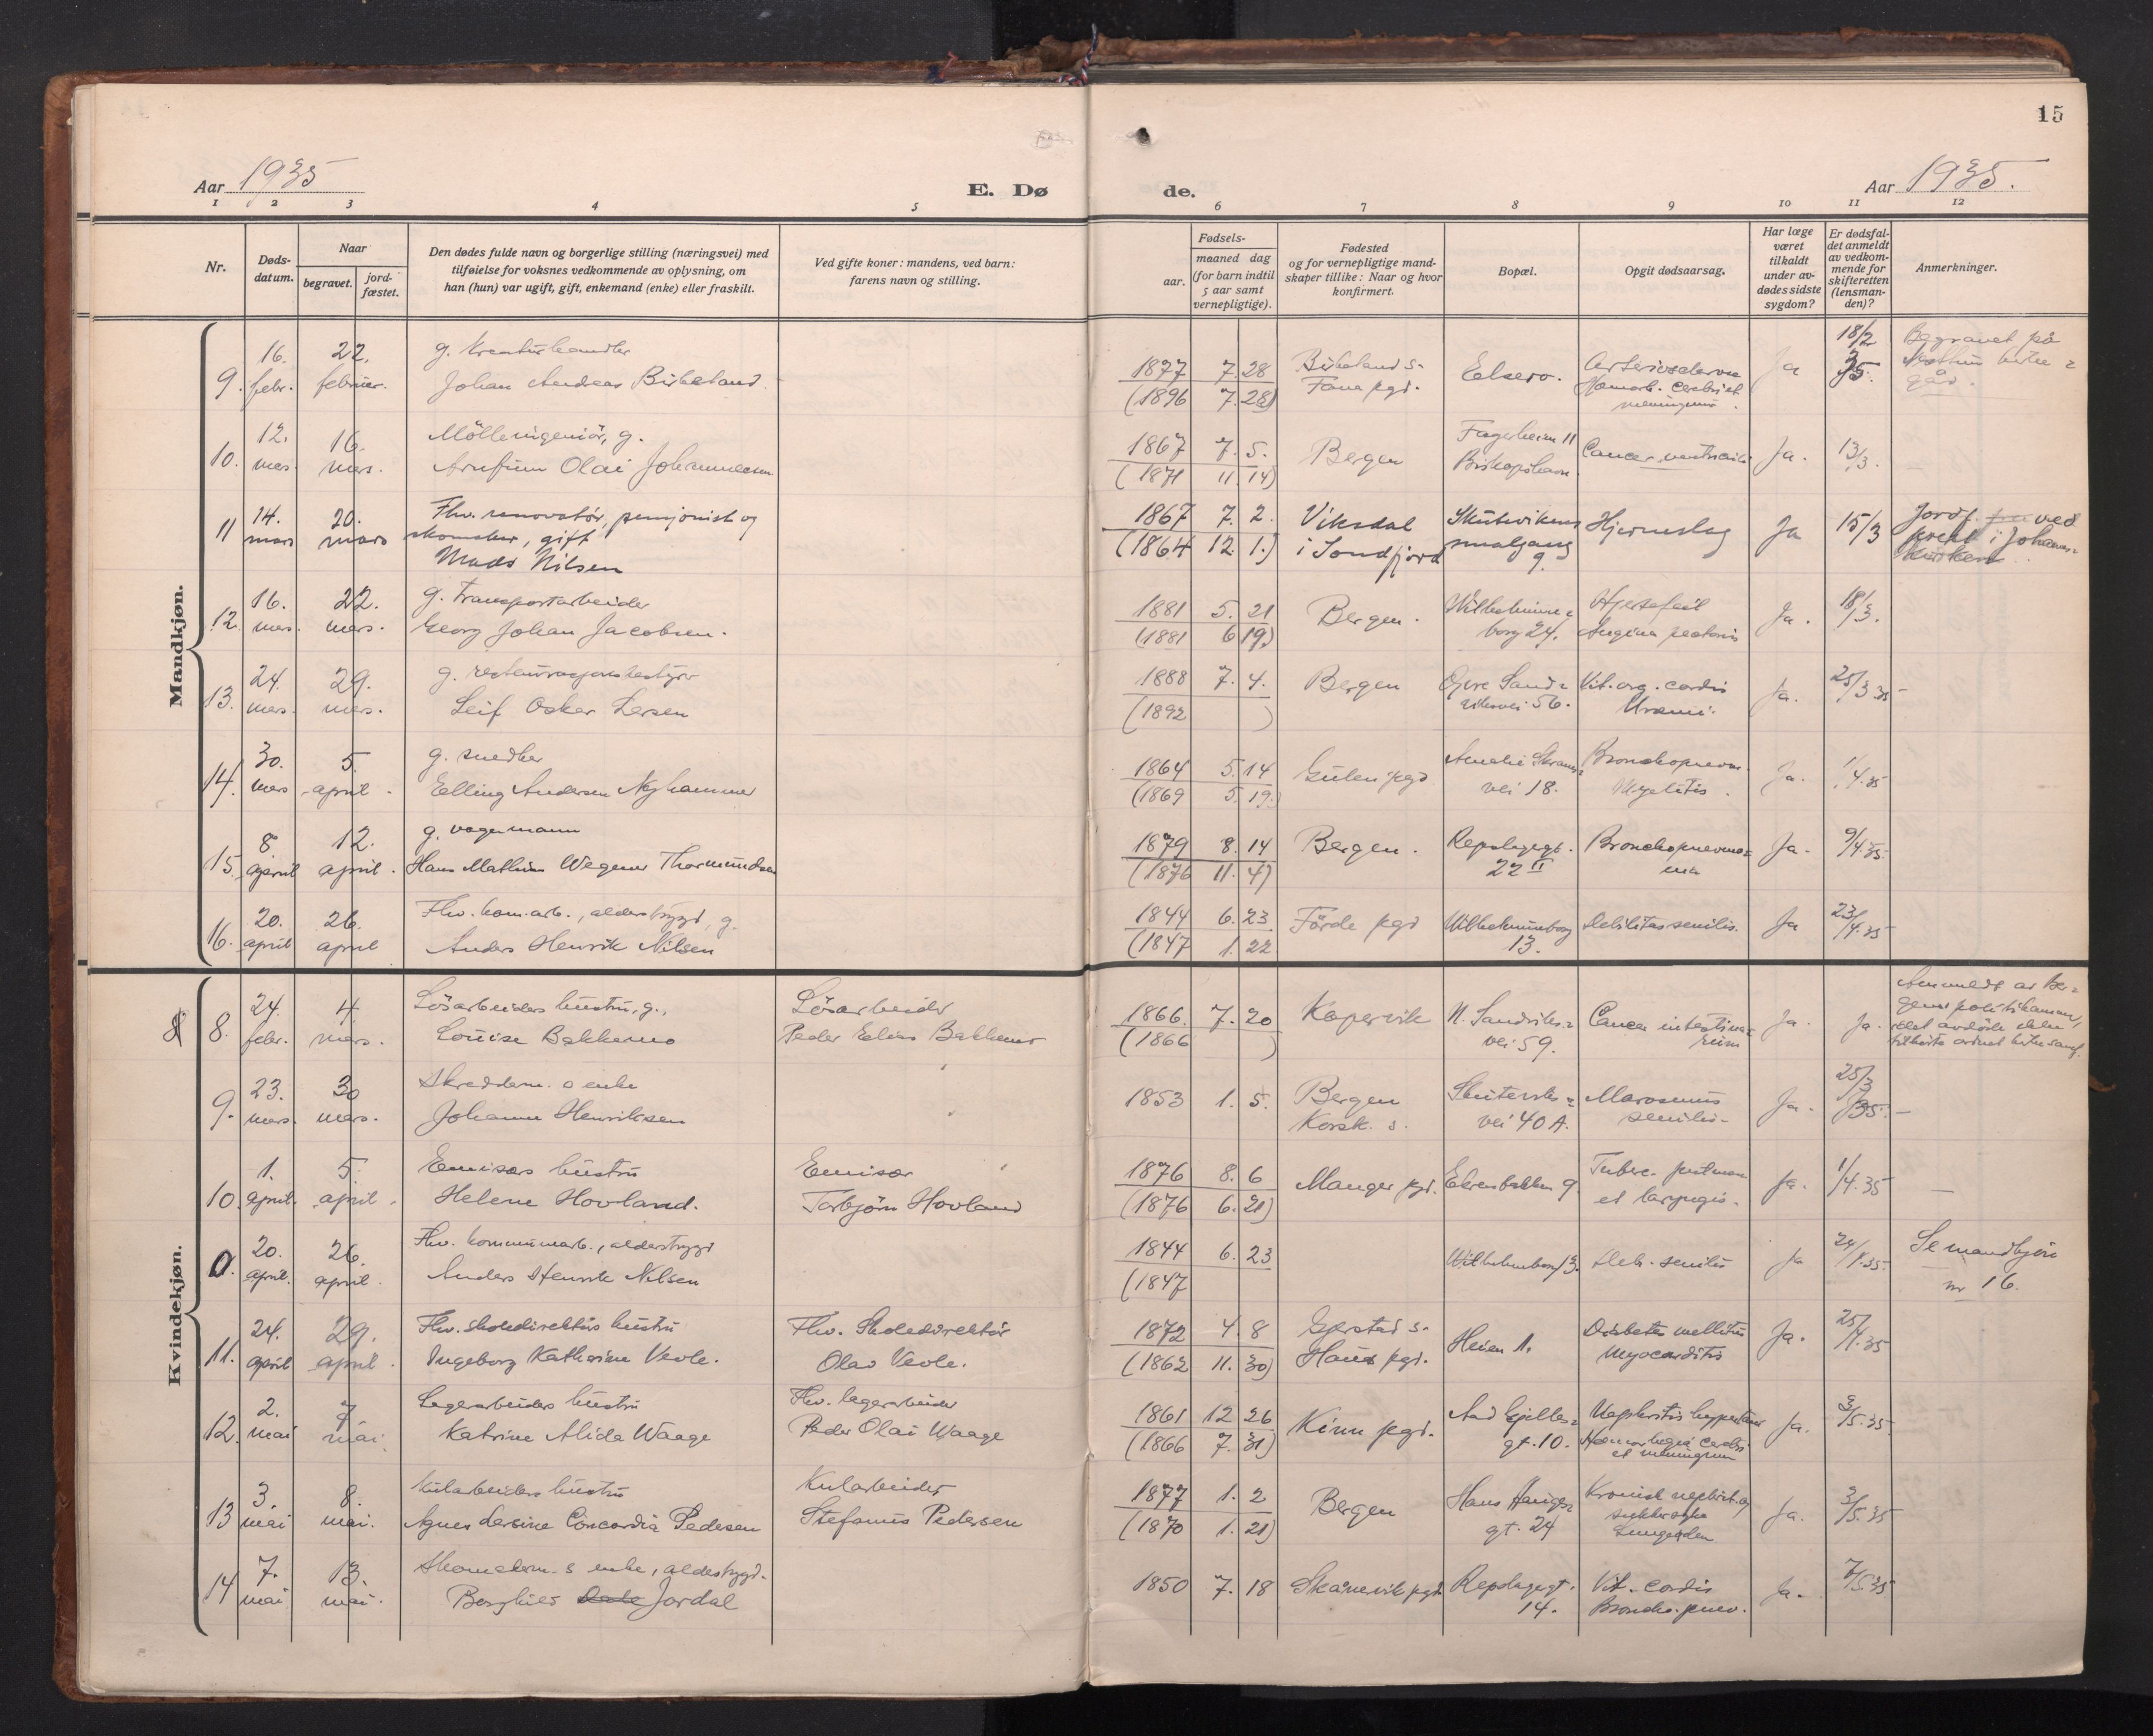 15
Aar 1935
E. Dø
de.
Aar 1935.
1 2 3 4 5 6 7 8 9 10 11 12
Nr.
Døds-
datum.
Naar
begravet.
jord-
fæstet.
Den dødes fulde navn og borgerlige stilling (næringsvei) med
tilføielse for voksnes vedkommende av oplysning, om
han (hun) var ugift, gift, enkemand (enke) eller fraskilt.
Ved gifte koner: mandens, ved barn:
farens navn og stilling.
Fødsels-
aar.
maaned dag
(for barn indtil
5 aar samt
vernepligtige).
Fødested
og for vernepligtige mand-
skaper tillike: Naar og hvor
konfirmert.
Bopæl.
Opgit dødsaarsag.
Har læge
været
tilkaldt
under av-
dødes sidste
sygdom?
Er dødsfal-
det anmeldt
av vedkom-
mende for
skifteretten
(lensman-
den)?
Anmerkninger.
Mandkjøn.
9. 16. febr. 22. februar.
g. Kreaturhandler
Johan Andreas Birkeland.
1877 7. 28
(1896 7. 28)
Birkeland s.
Fana pgd.
Elsero.
Arteriosclerose
Hæmorh. cerebri et
meningum.
Ja
18/2 35.
Begravet på
10. 12. mars. 16. mars.
Mölleingeniör, g.
Arnfinn Olai Johannessen
1867 7. 5.
(1871 11. 14)
Bergen
Fagerheim 11
Biskopshavn.
Cancer ventriculi
Ja.
13/3.
11 14. mars 20. mars
Fhv. renovatör, pensjonist og
skomaker, gift
Mads Nilsen
1867 7. 2.
(1864 12. 1.)
Viksdal
i Sondfjord
Skutevikens
smalgang
9.
Hjerneslag
Ja
15/3
Jordf. ved
i Johannes-
kirken.
12. 16. mars. 22. mars.
g. transportarbeider
Georg Johan Jacobsen.
1881 5. 21
(1881 6 19)
Bergen.
Wilhelmine-
borg 24.
Hjertefeil
Angina pectoris
Ja.
18/3.
13. 24. mars. 29. mars.
g. restaurasjonsbestyrer
Leif Oskar Larsen
1888 7. 4.
(1892 )
Bergen
Övre Sand-
viksvei 56.
Vit. org. cordis
Uræmi.
Ja.
25/3 35
14. 30. mars 5. april.
g. snedker
Elling Andersen Nyhammer
1864 5. 14
(1869 5. 19.)
Gulen pgd
Amalie Skrams-
vei 18.
Bronchopneum.
Myelitis.
Ja.
1/4.35
15. 8. april 12. april.
g. vognmann
Hans Mathias Wegener Thormundsen
1879 8. 14
(1876 11. 4)
Bergen.
Repslagergt.
22 II
Bronchopneumo-
nia
Ja.
9/4.35.
16. 20. april 26. april
Fhv. kom.arb., alderstrygd, g.
Anders Henrik Nilsen
1844 6. 23
(1847 1. 22
Förde pgd
Wilhelmineborg
13.
Debilitas senilis.
Ja
23/4.35
Kvindekjøn.
8 8. 24. febr. 4. mars.
Lösarbeiders hustru, g.,
Louise Bakkemo
Lösarbeider
Peder Elias Bakkemo
1866. 7. 20
(1866 )
Kopervik
N. Sandviks-
vei 59.
Cancer intestina-
rum
Ja.
Ja.
Anmeldt av Ber-
gens politikammer,
9. 23. mars. 30 mars.
Skredderm.s enke
Johanne Henriksen
1853 1. 5.
Bergen
Korsk. s.
Skuteviks-
vei 40 A.
Marasmus
senilis.
Ja.
25/3 35.
10. 1. april. 5. april.
Emisærs hustru
Helene Hovland.
Emisær
Torbjörn Hovland
1876 8. 6
(1876 6. 21)
Manger pgd.
Ekrenbakken 9.
Tuberc. pulmon
et laryngis.
Ja.
1/4.35
0. 20. april. 26. april.
Fhv. kommunearb., alderstrygd
Anders Henrik Nilsen
1844 6. 23
(1847
Wilhelmineborg 13.
Deb. senilis
Ja
24/4.35.
Se mandkjön
nr 16.
11. 24. april 29. april.
Fhv. skoledirektörs hustru
Ingeborg Katharine Vevle.
Fhv. Skoledirektör
Olav Vevle.
1872 4. 8
(1862 11. 30)
Gjerstad s.
Haus pgd.
Heien 1.
Diabetes mellitus
Myocarditis
Ja.
25/4.35
12. 2. mai 7 mai.
Lagerarbeiders hustru
Katrine Alida Waage
Fhv. lagerarbeider
Peder Olai Waage
1861 12 26
(1866 7. 31)
Kinn pgd.
Aad Gjelles-
gt. 10.
Nephritis hypertens
Hæmorhagia cerebri
et meningum
Ja.
3/5.35.
13 3. mai 8. mai.
Kularbeiders hustru
Agnes Larsine Concordia Pedersen
Kularbeider
Stefanus Pedersen
1877 1. 2
(1870 1. 21)
Bergen
Hans Hauges-
gt. 24
Kronisk nephrit. og
sukkersyke
Ja.
3/5.35
14 7. mai 13. mai.
Skomakerm.s enke, alderstrygd.
Borghild Dale Jordal
1850 7. 18
Skånevik pgd.
Repslagergt.
14.
Vit. cordis
Broncho.pneu.
Ja.
7/5.35